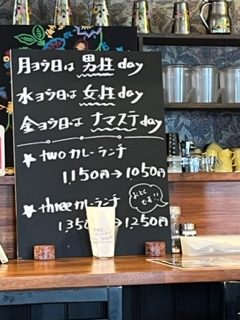 月ヨウ日は 男性 day
水ヨウ日は 女性 day
金ヨウ日は ナマステ day
★ twoカレーランチ
1,150円→1050円
★ threeカレーランチ
おとく
です
1350円→1,250円